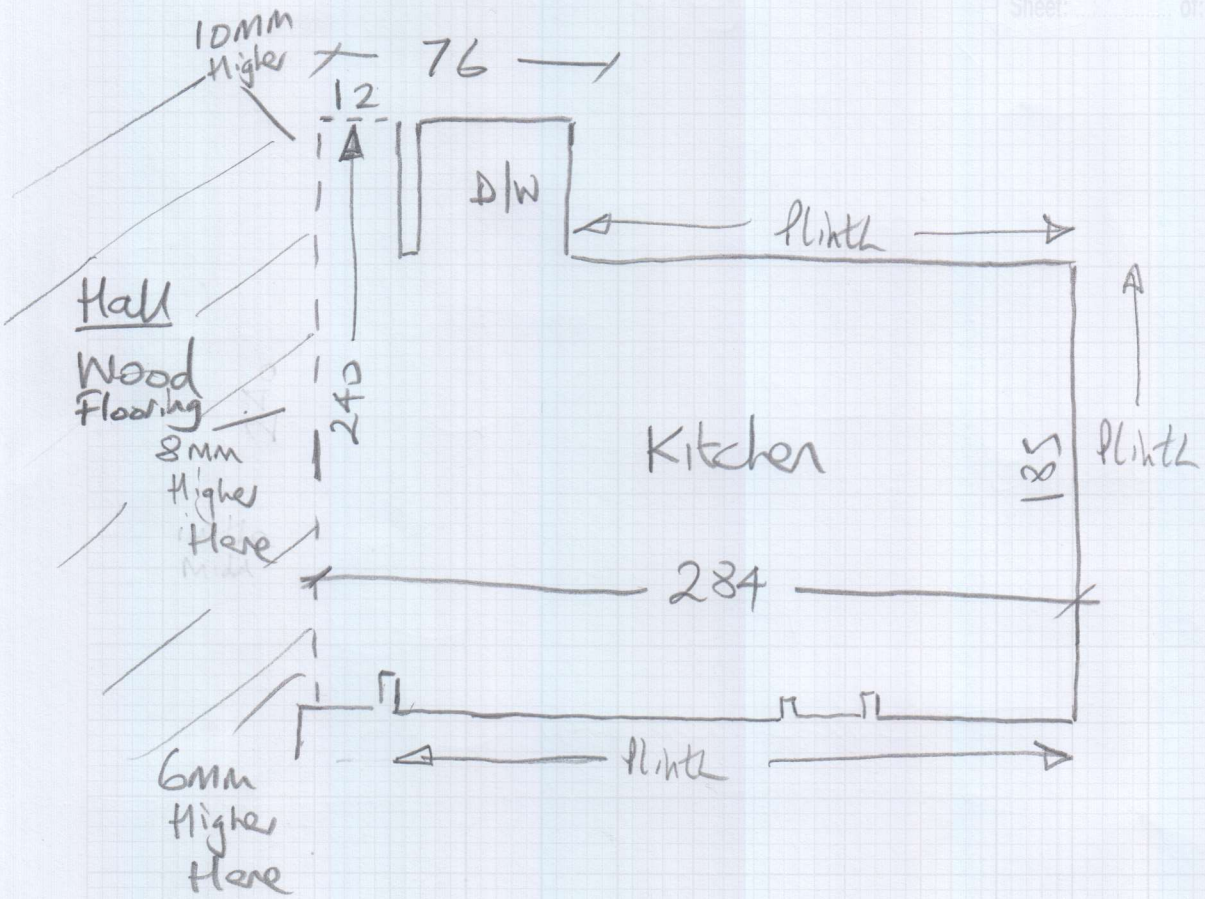 Sheet: of:
10MM
Higher
76
12
D/W
Plinth
Hall
Wood
Flooring
240
8MM
Higher
Here
Kitchen
185
Plinth
284
Plinth
6MM
Higher
Here